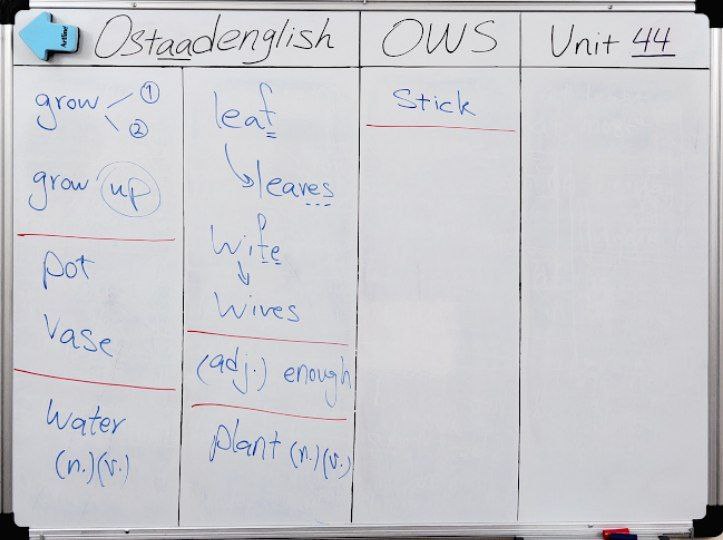 Ostaadenglish
OWS
Unit 44
grow ①
②
grow up
pot
vase
water
(n.)(v.)
leaf
leaves
wife
wives
(adj.) enough
plant (n.)(v.)
Stick